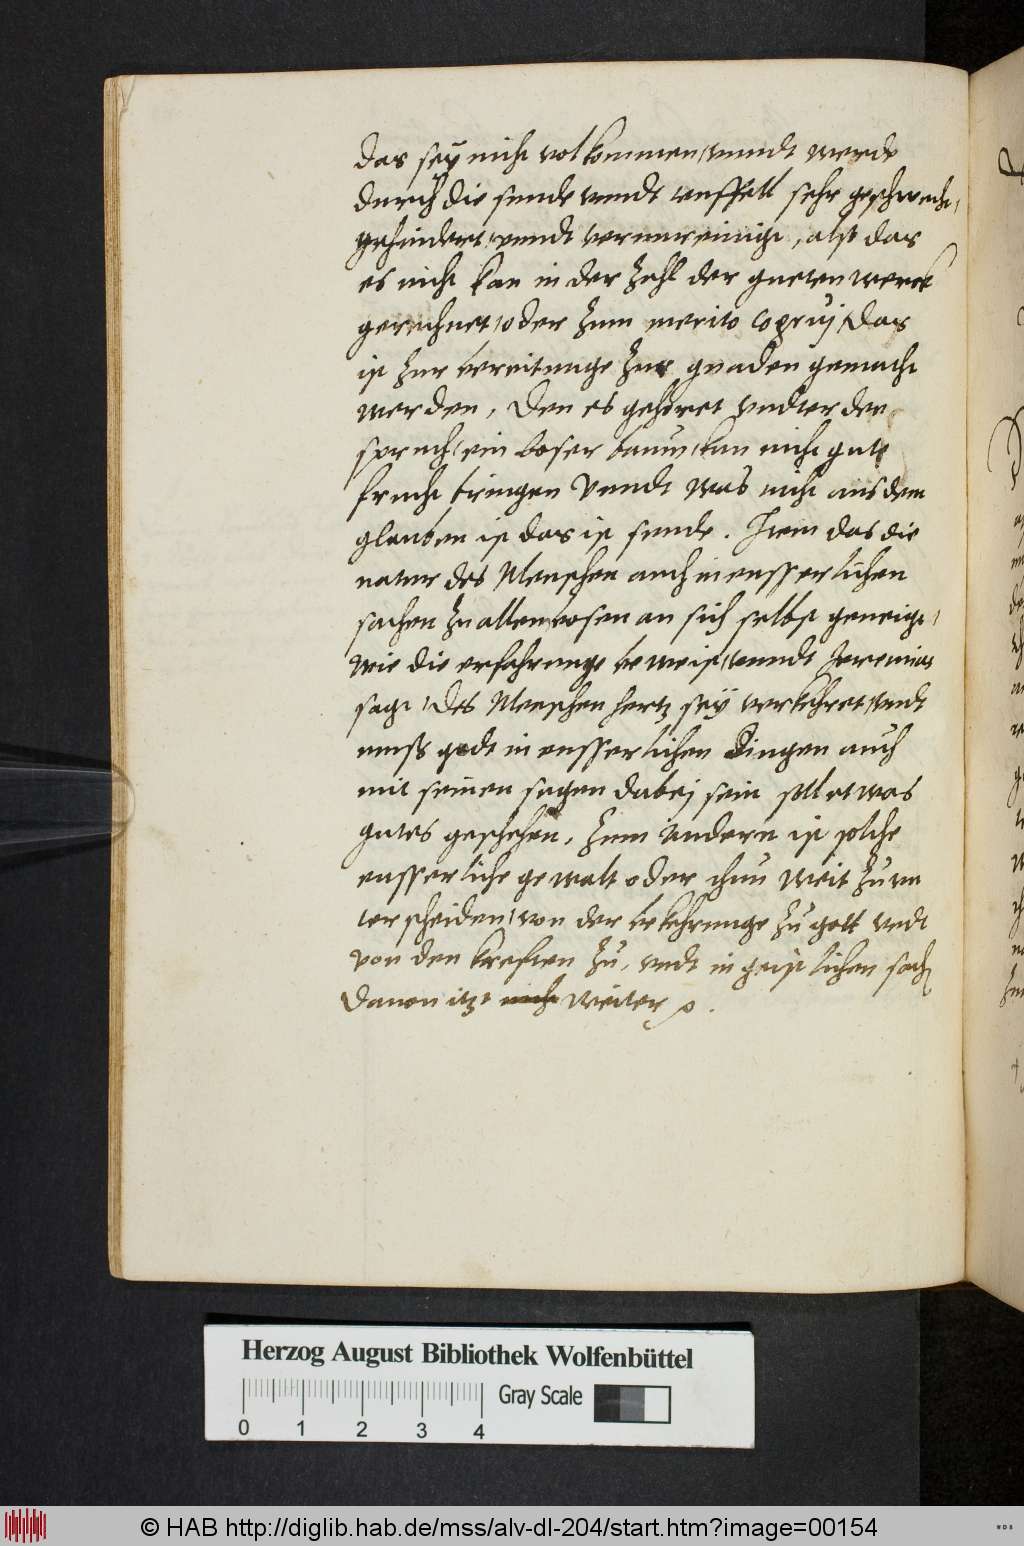 das seÿ nicht volkommen, vnndt werde
durch die sunde vnndt teuffell sehr geschwecht,
gehindert, vnndt verunreinigt, alß das
es nicht kan in der Zahl der gueten werck
gerechnet, oder Zum merito congrui, das
ist Zur bereitunge Zur gnaden gemacht
werden, Den es gehöret vndter den
spruch, ein boser baum, kan nicht gute
frucht bringen Vnndt was nicht aus dem
glauben ist das ist sunde. Item das die
natur des Menschen auch in eusserlichen
sachen Zu allem bosen an sich selbst geneigt,
wie die erfahrunge beweist, vnndt Jeremias
sagt, des Menschen hertz seÿ verkehret, vndt
muß godt in eusserlichen Dingen auch
mit seinen segen dabej sein soll etwas
gutes geschehen, Zum Andern ist solche
eusserliche gewalt oder thun weit Zu vn
terscheiden, von der bekehrunge Zu gott vndt
von den kreften Zu, vndt in geistlichen sach
Dauon itzt nicht weiter
Herzog August Bibliothek Wolfenbüttel
Gray Scale
0 1 2 3 4
© HAB http://diglib.hab.de/mss/alv-dl-204/start.htm?image=00154